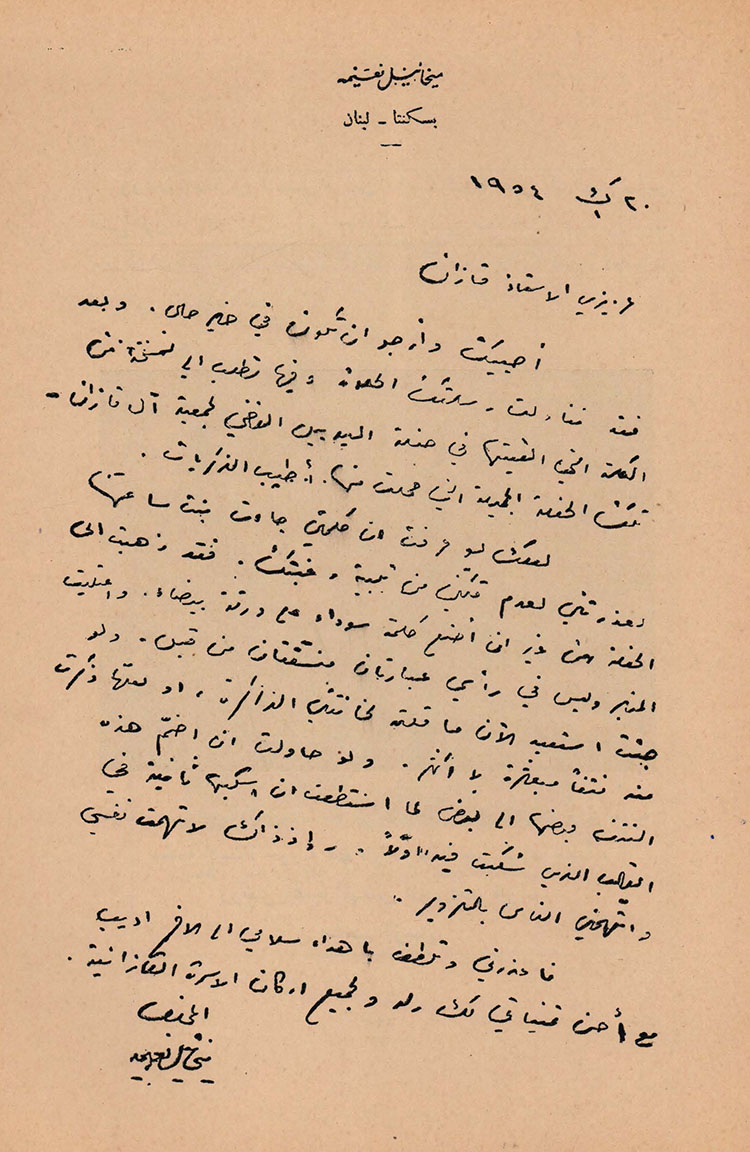 ميخائيل نعيمه
بسكنتا - لبنان
٢٠ ك١ ١٩٥٤
عزيزي الاستاذ قازان
أحييك وأرجو ان تكون في خير حال. وبعد
فقد تناولت رسالتك الحلوة وفيها تطلب الي نسخة من
الكلمة التي القيتها في حفلة اليوبيل الفضي لجمعية آل قازان -
تلك الحفلة الجميلة التي حملت منها أطيب الذكريات.
لعلك لو عرفت ان كلمتي جاءت بنت ساعتها
لعذرتني لعدم تمكني من تلبية رغبتك. فقد ذهبت الى
الحفلة من غير ان أضع كلمة سوداء على ورقة بيضاء. واعتليت
المنبر وليس في رأسي عبارتان منسقتان من قبل. ولو
جئت استعيد الآن ما قلته لخانتني الذاكرة، او لعلها ذكرت
منه نتفاً مبعثرة لا أكثر. ولو حاولت ان اضمّ هذه
النتف بعضها الى بعض لما استطعت ان اسكبها ثانية في
القالب الذي سُكبت فيه اوّلاً. وإذ ذاك لاتهمت نفسي
واتهمني الناس بالتزوير.
فاعذرني وتلطف باهداء سلامي الى الاخ اديب
مع أحسن تمنياتي لك وله ولجميع اركان الاسرة القازانية.
المخلص
ميخائيل نعيمه